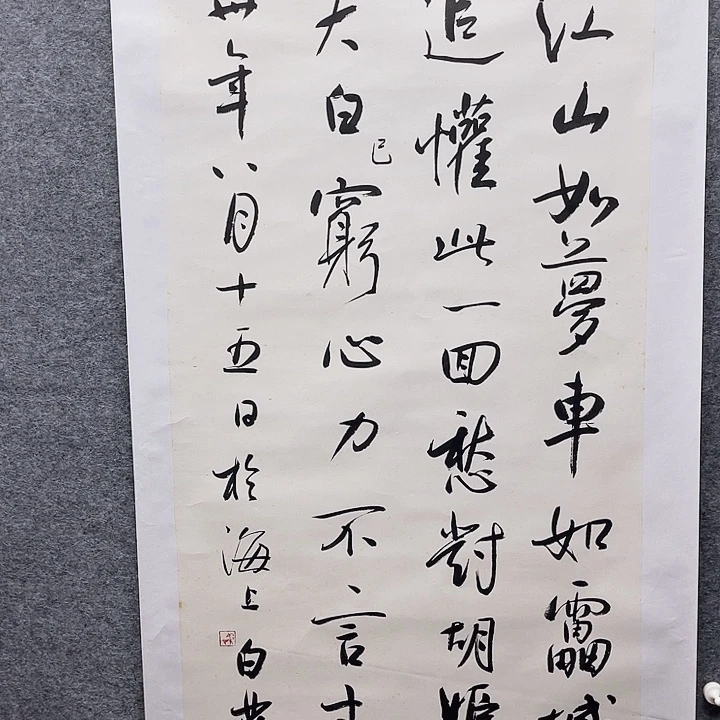 江山如夢車如靁城
追懽此一回愁對胡姬
大白已窮心力不言
卅年八月十五日於海上白